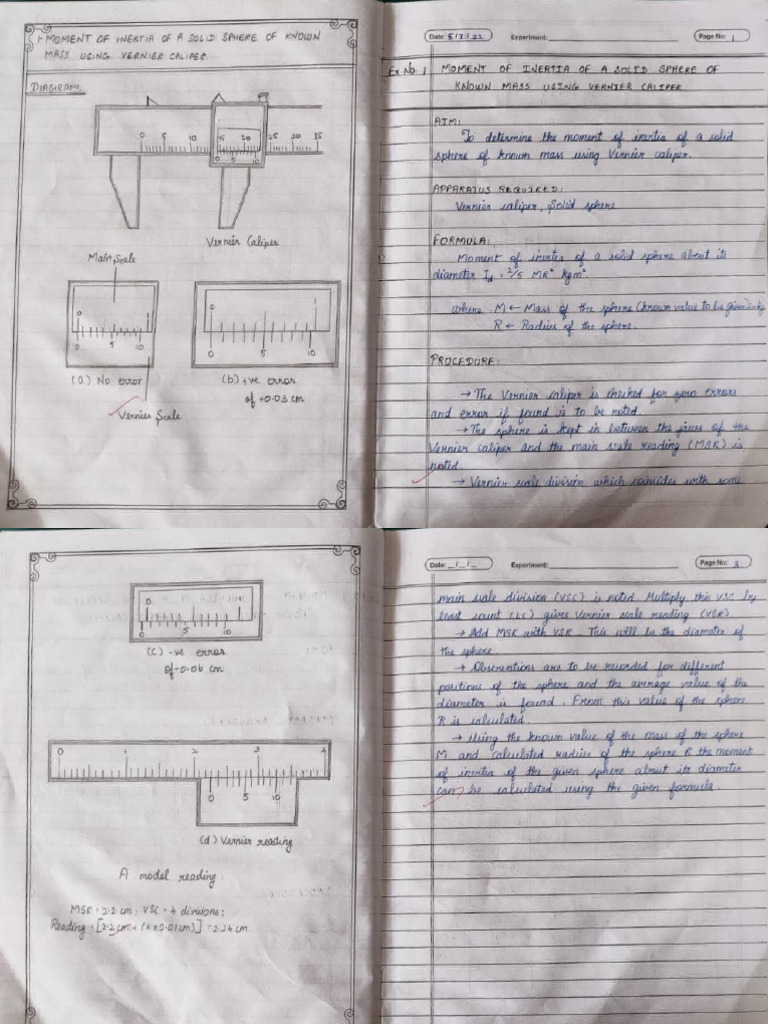 1. MOMENT OF INERTIA OF A SOLID SPHERE OF KNOWN
MASS USING VERNIER CALIPER.
DIAGRAM:
0 5 10 15 20 25 30 35
0 5 10
Vernier Caliper
Main Scale
0 1
0 5 10
(a) No error
Vernier Scale
0 1
0 5 10
(b) +ve error
of +0.03 cm
Date: 5/3/22 Experiment: Page No: 1
Ex No. 1 MOMENT OF INERTIA OF A SOLID SPHERE OF
KNOWN MASS USING VERNIER CALIPER
AIM:
To determine the moment of inertia of a solid
sphere of known mass using Vernier caliper.
APPARATUS REQUIRED:
Vernier caliper, Solid sphere
FORMULA:
Moment of inertia of a solid sphere about its
diameter Id = 2/5 MR² kgm².
where M ← Mass of the sphere (known value to be given)
R ← Radius of the sphere.
PROCEDURE:
→ The Vernier caliper is checked for zero errors
and error if found is to be noted.
→ The sphere is kept in between the jaws of the
Vernier caliper and the main scale reading (MSR) is
noted.
→ Vernier scale division which coincides with some
0 1
0 5 10
(c) -ve error
of -0.06 cm
0 1 2 3 4
0 5 10
(d) Vernier reading
A model reading:
MSR = 2.2 cm; VSC = 4 divisions;
Reading = [2.2 cm + (4 x 0.01 cm)] = 2.24 cm
Date: _/_/_ Experiment: Page No: 3
main scale division (VSC) is noted. Multiply this VSC by
least count (LC) gives Vernier scale reading (VSR).
→ Add MSR with VSR. This will be the diameter of
the sphere.
→ Observations are to be recorded for different
positions of the sphere and the average value of the
diameter is found. From this value of the sphere
R is calculated.
→ Using the known value of the mass of the sphere
M and calculated radius of the sphere R the moment
of inertia of the given sphere about its diameter
can be calculated using the given formula.